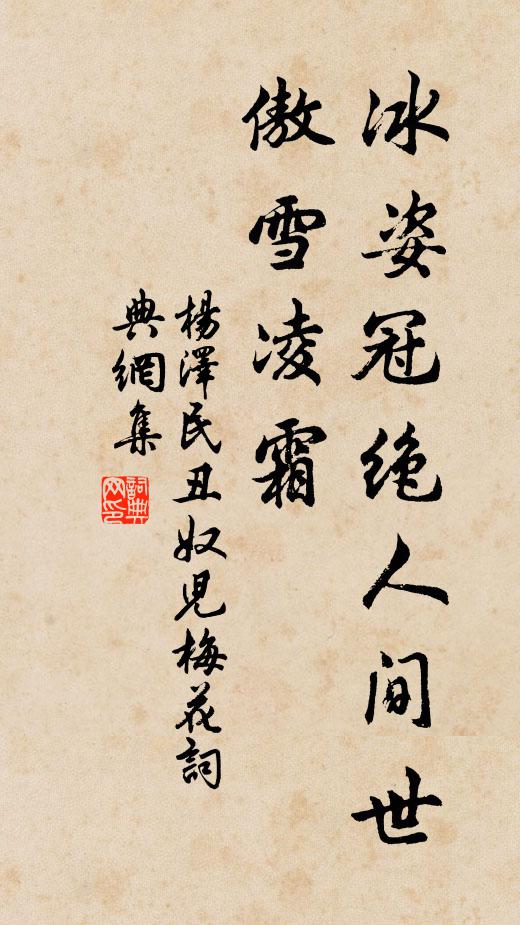 冰姿冠绝人间世
傲雪凌霜
楊澤民丑奴児梅花詞
典網集
詞典
网印